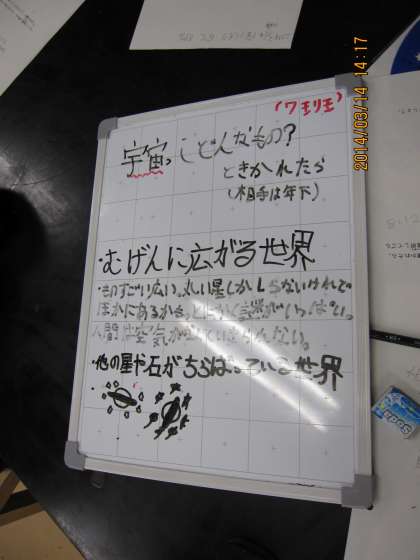 (ワ王リ王)
宇宙ってどんなもの?
ときかれたら
(相手は年下)
・むげんに広がる世界
・ものすごい広い。丸い星しかしらないけれど
ほかにあるかも。とにかく謎がいっぱい。
人間は空気が
・他の星や石がちらばっている世界
2014/03/14 14:17